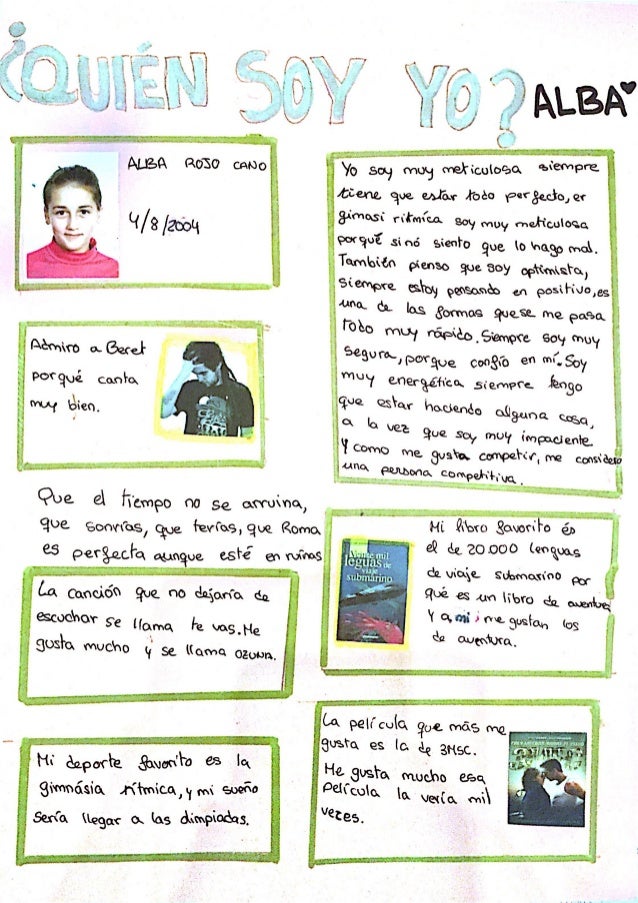 ¿QUIÉN SOY YO?
ALBA
ALBA ROJO CANO
4/8/2004
Yo soy muy meticulosa siempre
tiene que estar todo perfecto, er
gimasi ritmica soy muy meticulosa
porquē sinó siento que lo hago mal.
También pienso que soy optimista,
siempre estoy pensando en positivo, es
una de las formas que se me pasa
todo muy rápido. Siempre soy muy
segura, porque confío en mí. Soy
muy energética siempre tengo
que estar haciendo alguna cosa,
a la vez que soy muy impaciente
Y como me gusta competir, me considero
una persona competitiva.
Admiro a Beret
porqué canta
muy bien.
Que el tiempo no se arruina,
que sonrías, que terías, que Roma
es perfecta aunque esté en ruinas
Mi libro favorito és
el de 20.000 lenguas
de viaje submarino por
qué es un libro de aventura
Y a mi me gustan los
de aventura.
Veinte mil
leguas de
viaje
submarino
La canción que no dejaría de
escuchar se llama te vas. Me
gusta mucho y se llama OZUNA.
La película que más me
gusta es la de 3MSC.
Me gusta mucho esa
película la vería mil
vezes.
Mi deporte favorito es la
gimnásia rítmica, y mi sueño
sería llegar a las olimpiadas.